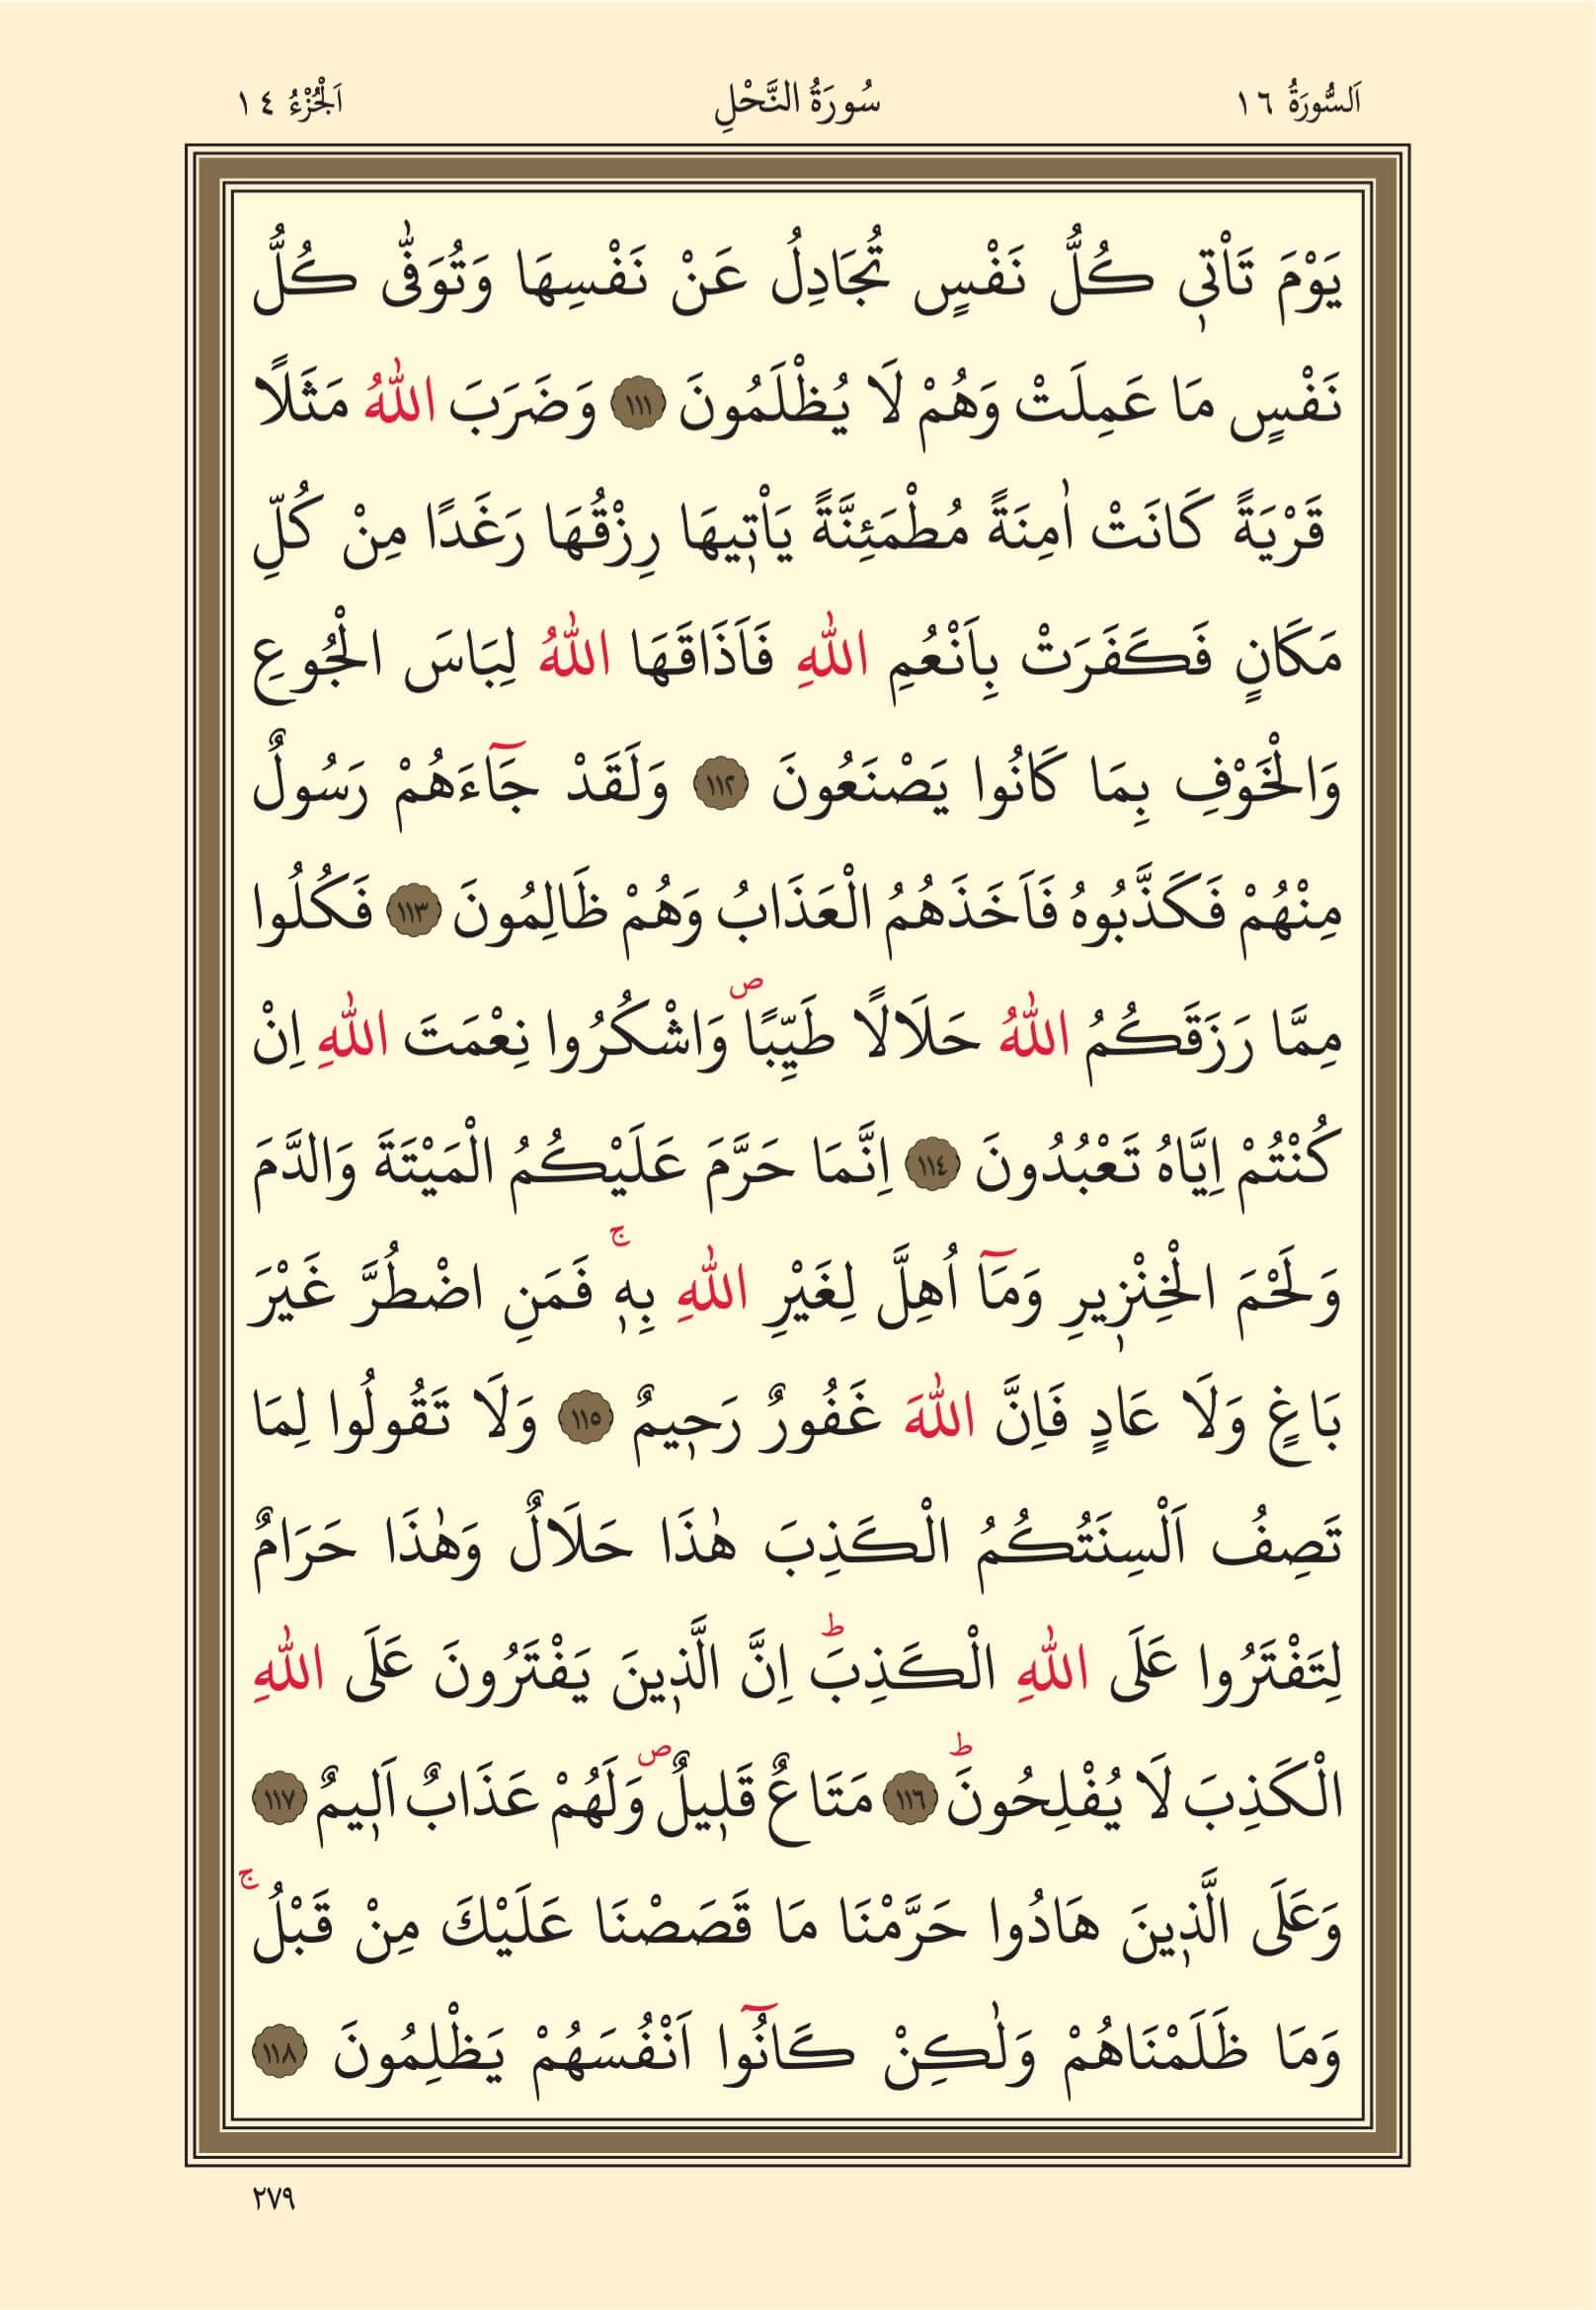 اَلسُّورَةُ ١٦ سُورَةُ النَّحْلِ اَلْجُزْءُ ١٤
يَوْمَ تَأْتٖي كُلُّ نَفْسٍ تُجَادِلُ عَنْ نَفْسِهَا وَتُوَفّٰى كُلُّ
نَفْسٍ مَا عَمِلَتْ وَهُمْ لَا يُظْلَمُونَ ١١١ وَضَرَبَ اللّٰهُ مَثَلًا
قَرْيَةً كَانَتْ اٰمِنَةً مُطْمَئِنَّةً يَأْتٖيهَا رِزْقُهَا رَغَدًا مِنْ كُلِّ
مَكَانٍ فَكَفَرَتْ بِاَنْعُمِ اللّٰهِ فَاَذَاقَهَا اللّٰهُ لِبَاسَ الْجُوعِ
وَالْخَوْفِ بِمَا كَانُوا يَصْنَعُونَ ١١٢ وَلَقَدْ جَٓاءَهُمْ رَسُولٌ
مِنْهُمْ فَكَذَّبُوهُ فَاَخَذَهُمُ الْعَذَابُ وَهُمْ ظَالِمُونَ ١١٣ فَكُلُوا
مِمَّا رَزَقَكُمُ اللّٰهُ حَلَالًا طَيِّبًاۖ وَاشْكُرُوا نِعْمَتَ اللّٰهِ اِنْ
كُنْتُمْ اِيَّاهُ تَعْبُدُونَ ١١٤ اِنَّمَا حَرَّمَ عَلَيْكُمُ الْمَيْتَةَ وَالدَّمَ
وَلَحْمَ الْخِنْزٖيرِ وَمَٓا اُهِلَّ لِغَيْرِ اللّٰهِ بِهٖۚ فَمَنِ اضْطُرَّ غَيْرَ
بَاغٍ وَلَا عَادٍ فَاِنَّ اللّٰهَ غَفُورٌ رَحٖيمٌ ١١٥ وَلَا تَقُولُوا لِمَا
تَصِفُ اَلْسِنَتُكُمُ الْكَذِبَ هٰذَا حَلَالٌ وَهٰذَا حَرَامٌ
لِتَفْتَرُوا عَلَى اللّٰهِ الْكَذِبَؕ اِنَّ الَّذٖينَ يَفْتَرُونَ عَلَى اللّٰهِ
الْكَذِبَ لَا يُفْلِحُونَؕ ١١٦ مَتَاعٌ قَلٖيلٌۖ وَلَهُمْ عَذَابٌ اَلٖيمٌ ١١٧
وَعَلَى الَّذٖينَ هَادُوا حَرَّمْنَا مَا قَصَصْنَا عَلَيْكَ مِنْ قَبْلُۚ
وَمَا ظَلَمْنَاهُمْ وَلٰكِنْ كَانُٓوا اَنْفُسَهُمْ يَظْلِمُونَ ١١٨
٢٧٩